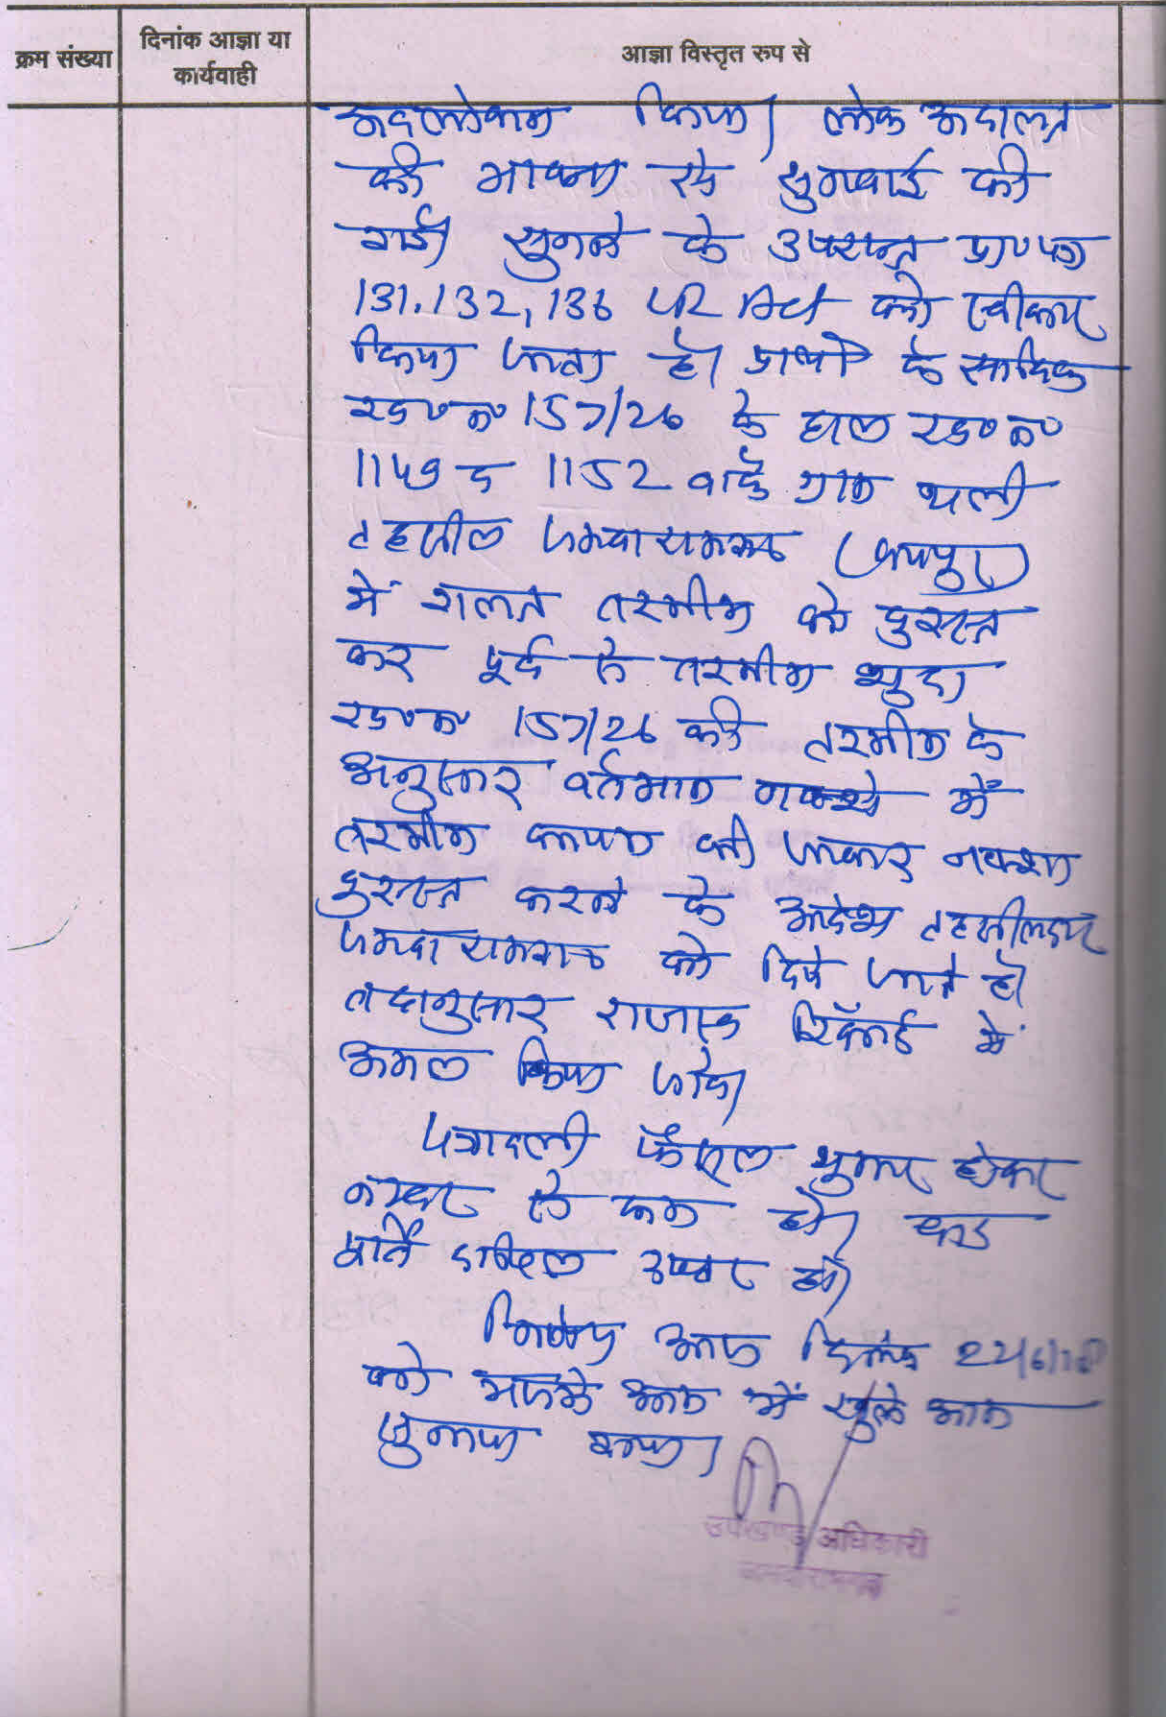 क्रम संख्या
दिनांक आज्ञा या
कार्यवाही
आज्ञा विस्तृत रुप से
अवलोकन किया। लोक अदालत
की भावना से सुनवाई की
गई। सुनने के उपरान्त प्रा०पत्र
131,132,136 LR Act को स्वीकार
किया जाता है। प्रार्थी के साबिक
ख०न० 157/26 के हाल ख०न०
1149 व 1152 वाके ग्राम थली
तहसील जमवारामगढ (जयपुर)
में गलत तरमीम को दुरस्त
कर पूर्व से तरमीम शुदा
ख०न० 157/26 की तरमीम के
अनुसार वर्तमान नक्शे में
तरमीम कायम की जाकर नक्शा
दुरस्त करने के आदेश तहसीलदार
जमवारामगढ को दिये जाते है।
तदानुसार राजस्व रिकॉर्ड में
अमल किया जावे।
पत्रावली फैसल शुमार होकर
नम्बर से कम हो। बाद
दाखिल दफ्तर हो।
निर्णय आज दिनांक 22/6/18
को में खुले आम
सुनाया गया।
उपखण्ड अधिकारी
जमवारामगढ